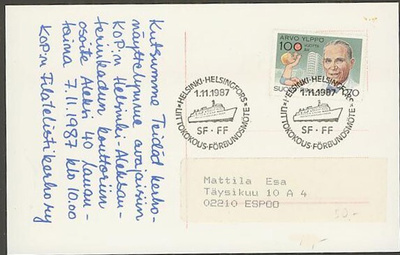 Kutsumme Teidät kerho-
näyttelymme avajaisiin
KOP:n Helsinki-Aleksan-
terinkadun konttoriin
osoite Aleksi 40 lauan-
taina 7.11.1987 klo 10.00
KOP:n Filatelistikerho ry
ARVO YLPPÖ
100
SUO
1,70
HELSINKI-HELSINGFORS
1.11.1987
SF-FF
LIITTOKOKOUS-FÖRBUNDSMÖTE
HELSINKI-HELSINGFORS
1.11.1987
SF-FF
LIITTOKOKOUS-FÖRBUNDSMÖTE
Mattila Esa
Täysikuu 10 A 4
02210 ESPOO